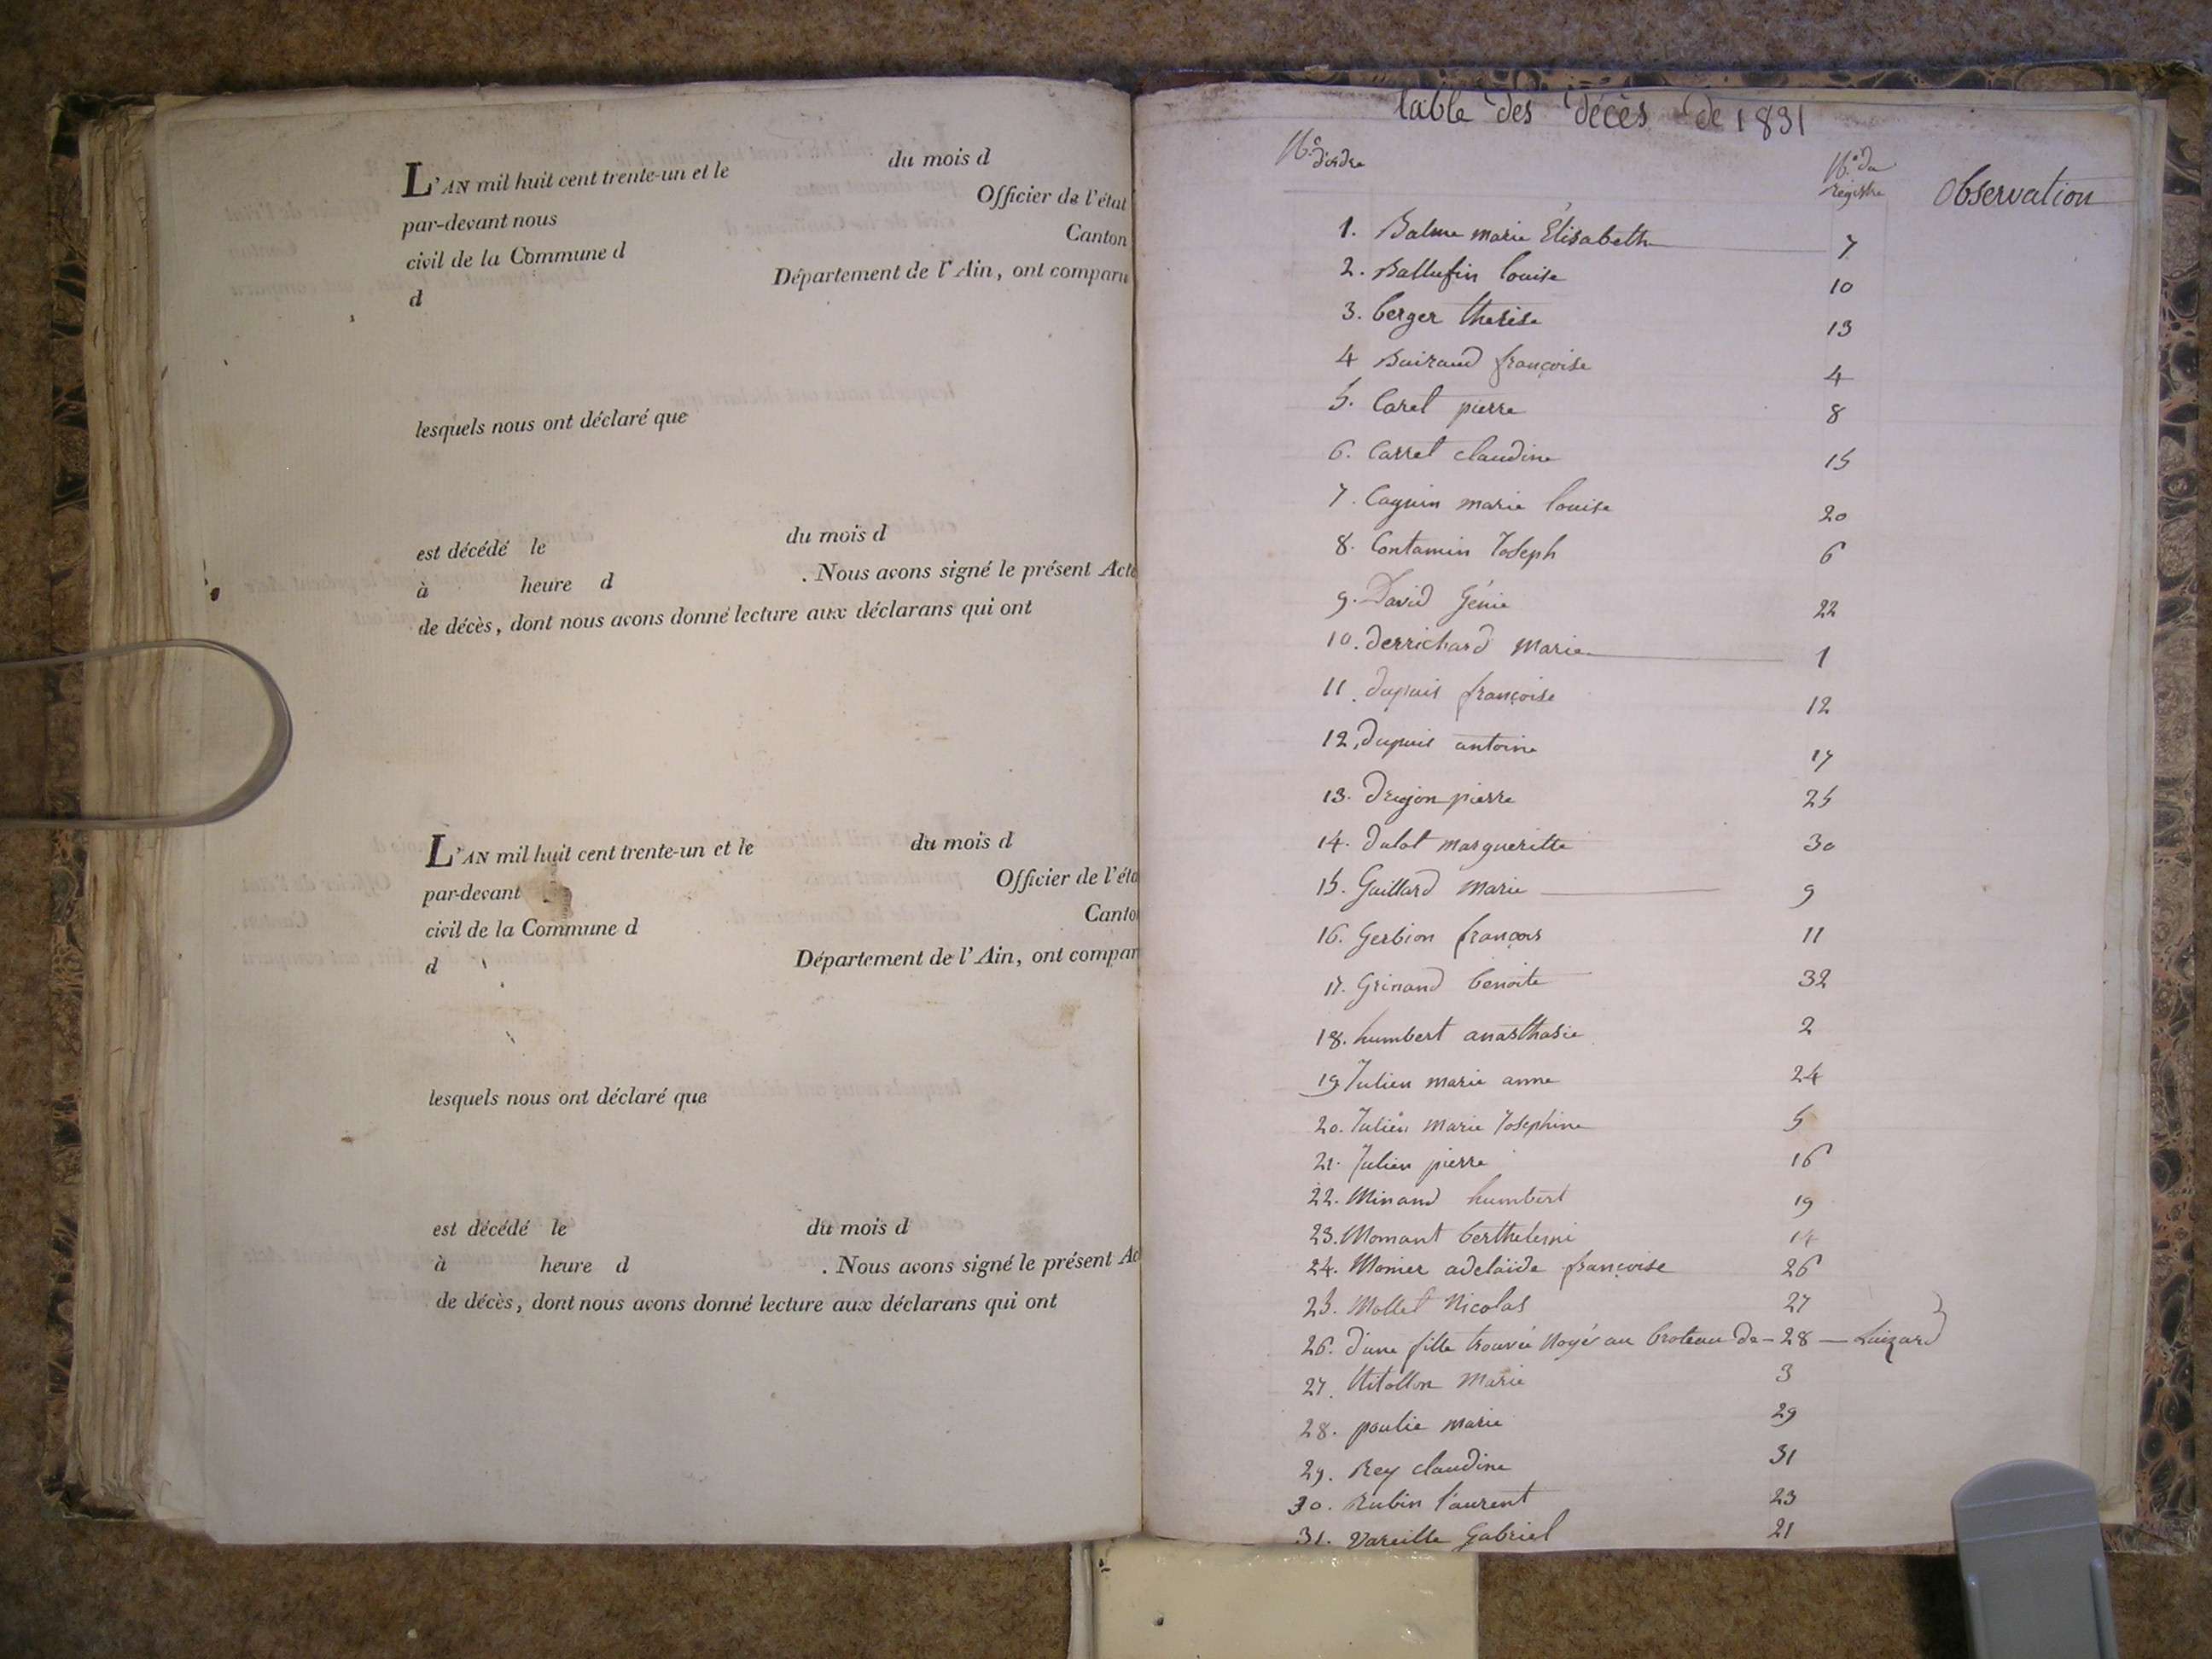 L'AN mil huit cent trente-un et le du mois d
par-devant nous Officier de l'état
civil de la Commune d Canton
d Département de l'Ain, ont comparu
lesquels nous ont déclaré que
est décédé le du mois d
à heure d . Nous avons signé le présent Acte
de décès, dont nous avons donné lecture aux déclarans qui ont
L'AN mil huit cent trente-un et le du mois d
par-devant Officier de l'éta
civil de la Commune d Canto
d Département de l'Ain, ont compar
lesquels nous ont déclaré que
est décédé le du mois d
à heure d . Nous avons signé le présent Ac
de décès, dont nous avons donné lecture aux déclarans qui ont
table des décès de 1831
N.° d'ordre N.° du registre Observation
1. Balme marie Élisabeth 7
2. Ballufin louise 10
3. berger therese 13
4 Buiraud françoise 4
5. Carel pierre 8
6. Carrel claudine 15
7. Caguin marie louise 20
8. Contamin Joseph 6
9. David Génie 22
10. derrichard Marie 1
11. dupuis françoise 12
12. dupuis antoine 17
13. Drujon pierre 25
14. dulot margueritte 30
15. Gaillard Marie 9
16. Gerbion françois 11
17. Grinand benoite 32
18. humbert anasthasie 2
19 Julien marie anne 24
20. Julien Marie Josephine 5
21. Julien pierre 16
22. Minand humbert 19
23. Momant berthelemi 14
24. Monier adelaïde françoise 26
25. Mollet Nicolas 27
26. d'une fille trouvée Noyé au broteau de - 28 - Luizard
27. Nitollon Marie 3
28. poulie marie 29
29. Rey claudine 31
30. Rubin laurent 23
31. Vareille Gabriel 21